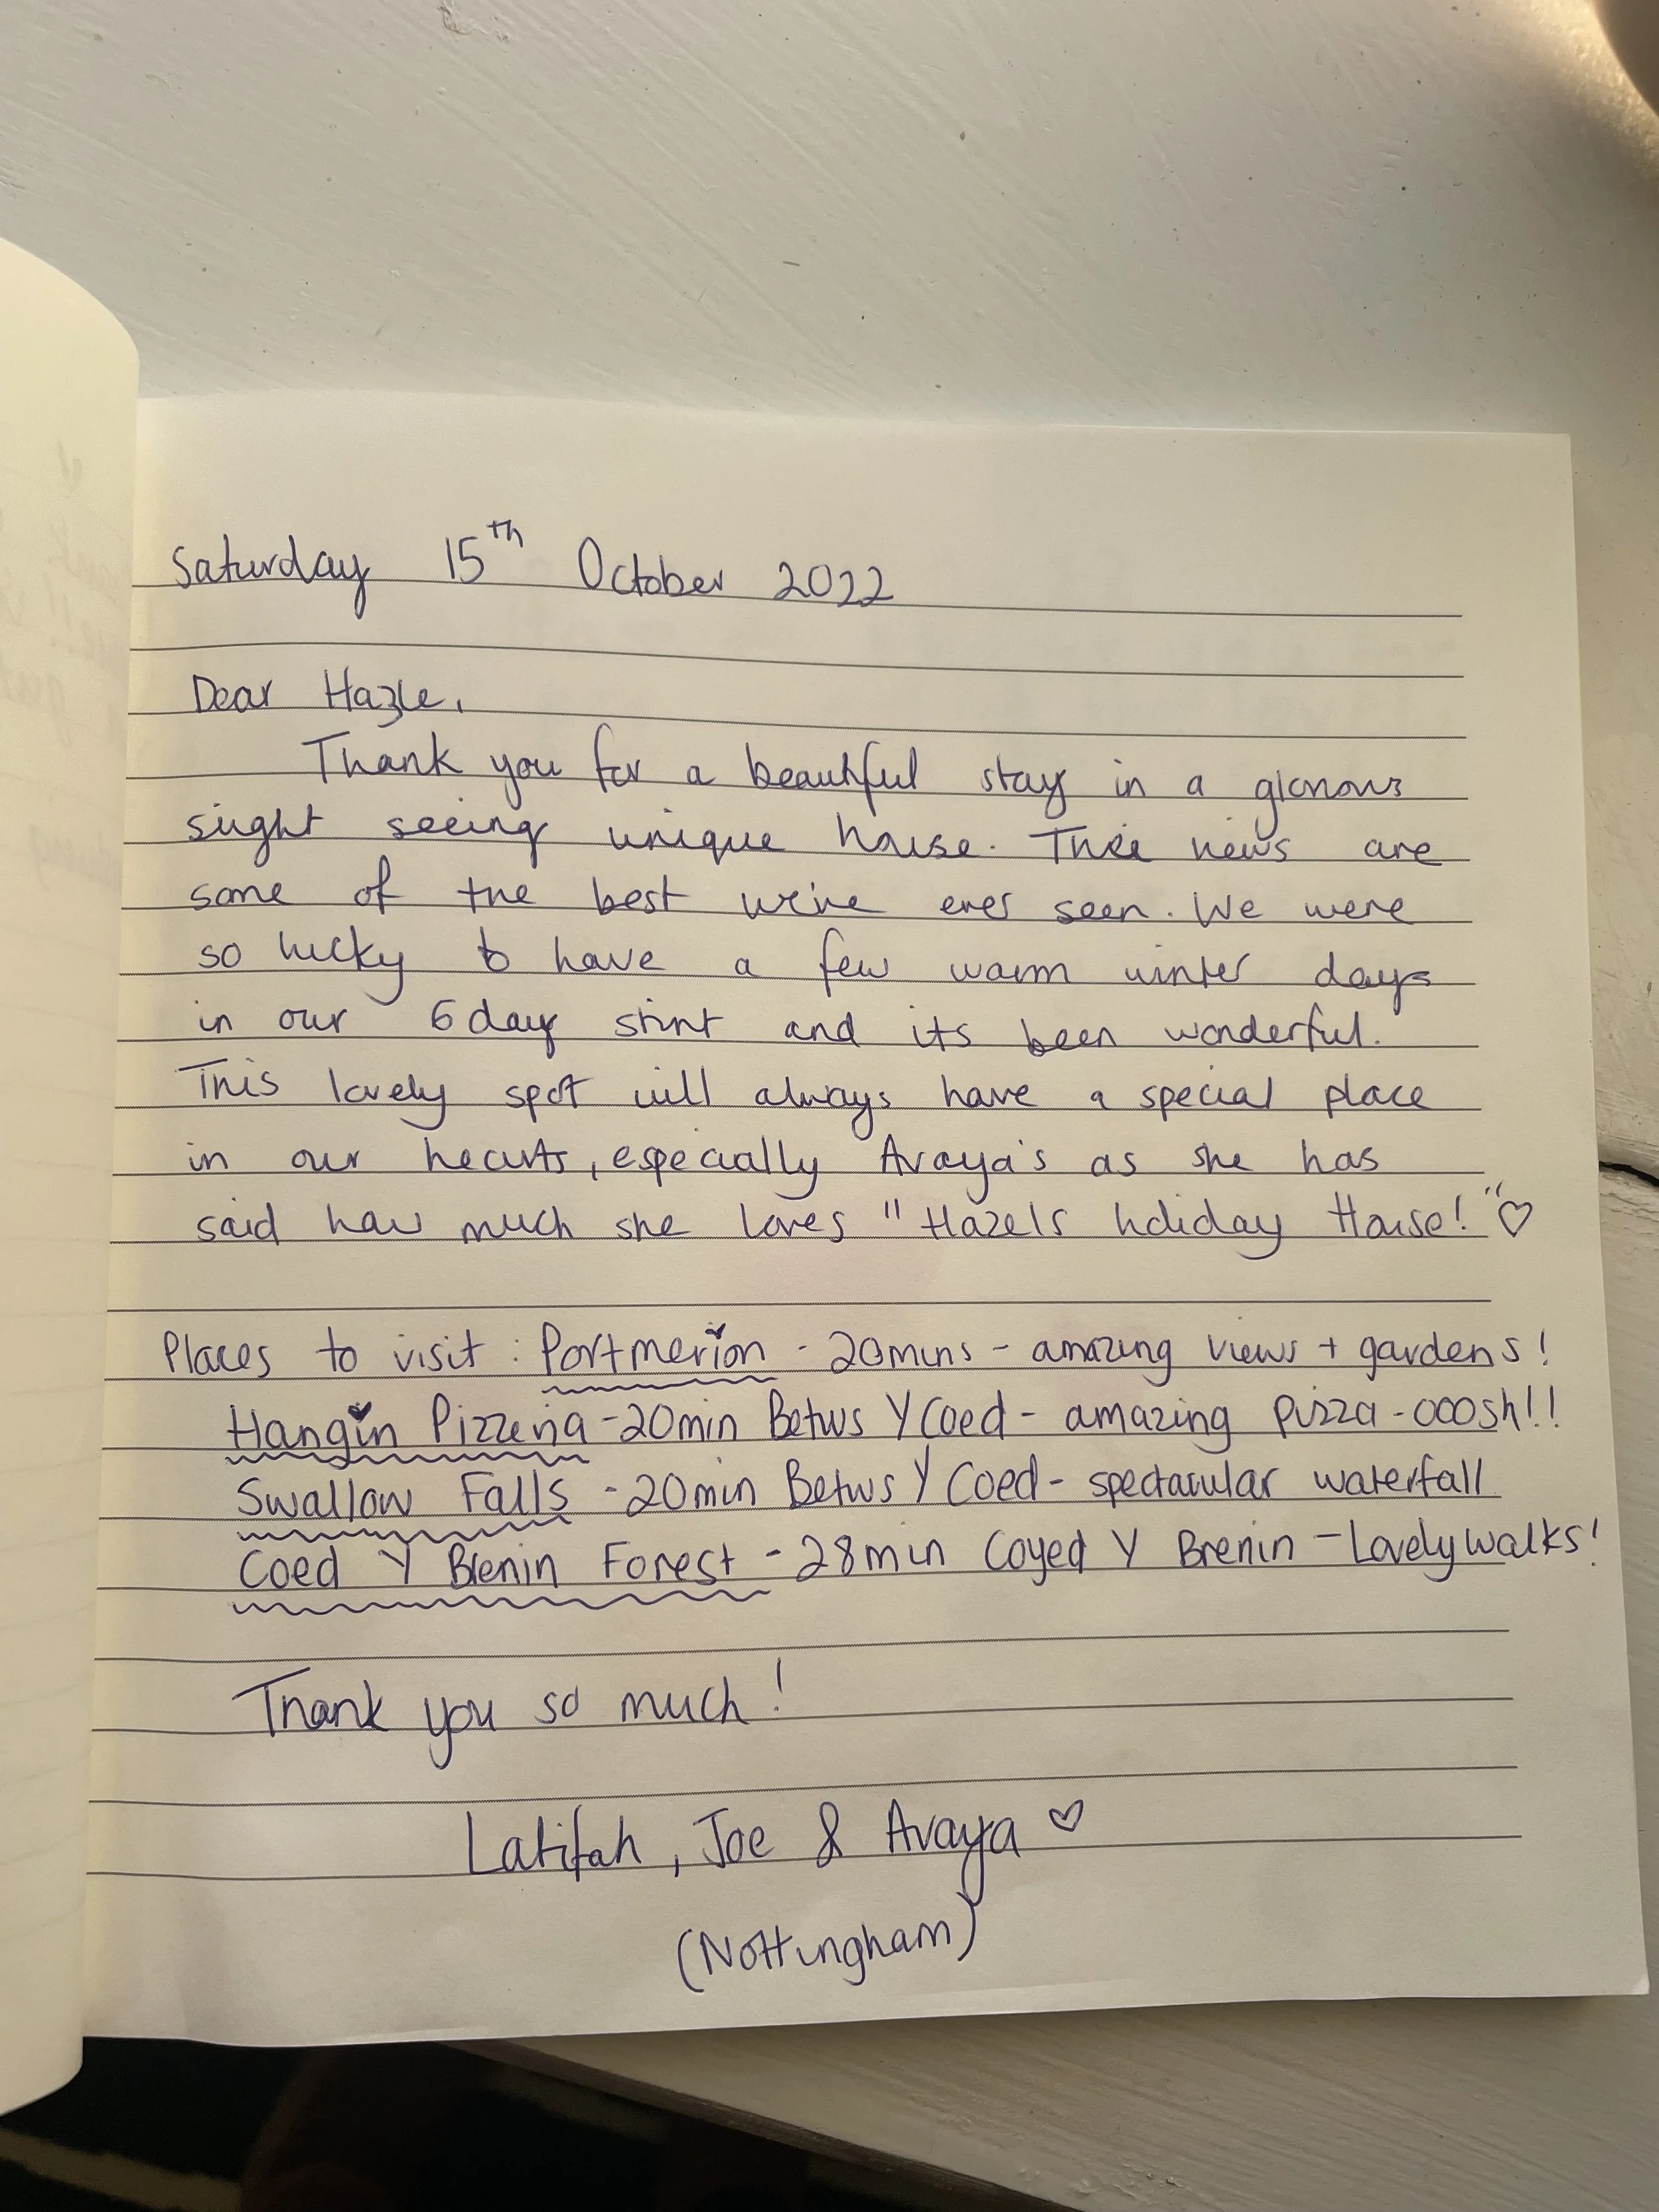 Saturday 15th October 2022
Dear Hazle,
Thank you for a beautiful stay in a glorious
sight seeing unique house. Thee views are
some of the best we've ever seen. We were
so lucky to have a few warm winter days
in our 6 day stint and its been wonderful.
This lovely spot will always have a special place
in our hearts, especially Avaya's as she has
said how much she loves "Hazels holiday House!" ♡
Places to visit : Portmerion - 20mins - amazing views + gardens!
Hangin Pizzeria - 20min Betws Y Coed - amazing pizza - ooosh!!
Swallow Falls - 20min Betws Y Coed - spectacular waterfall
Coed Y Brenin Forest - 28min Coyed Y Brenin - Lovely walks!
Thank you so much!
Latifah, Joe & Avaya ♡
(Nottingham)